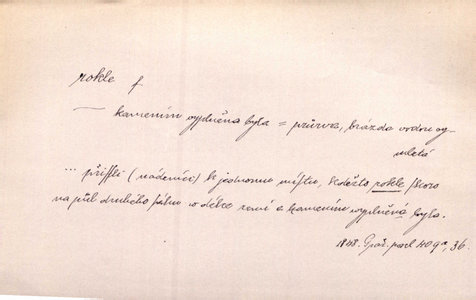 rokle f
— kamením vyplněna byla = průrva, brázda vodou vy-
mletá
... přišli (nádeníci) k jednomu místu, kdežto rokle skoro
na půl druhého sáhu w délce rowně kamením wyplněná byla.
1848. Graž. pod 409a, 36.